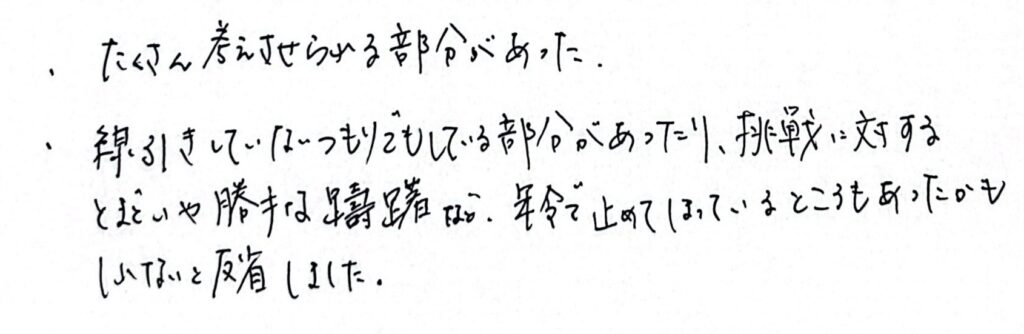 ・ たくさん考えさせられる部分があった.
・ 線引きしていないつもりでもしている部分があったり、挑戦に対する
とまどいや勝手な躊躇など、年令で止めてしまっているところもあったかも
しれないと反省しました.